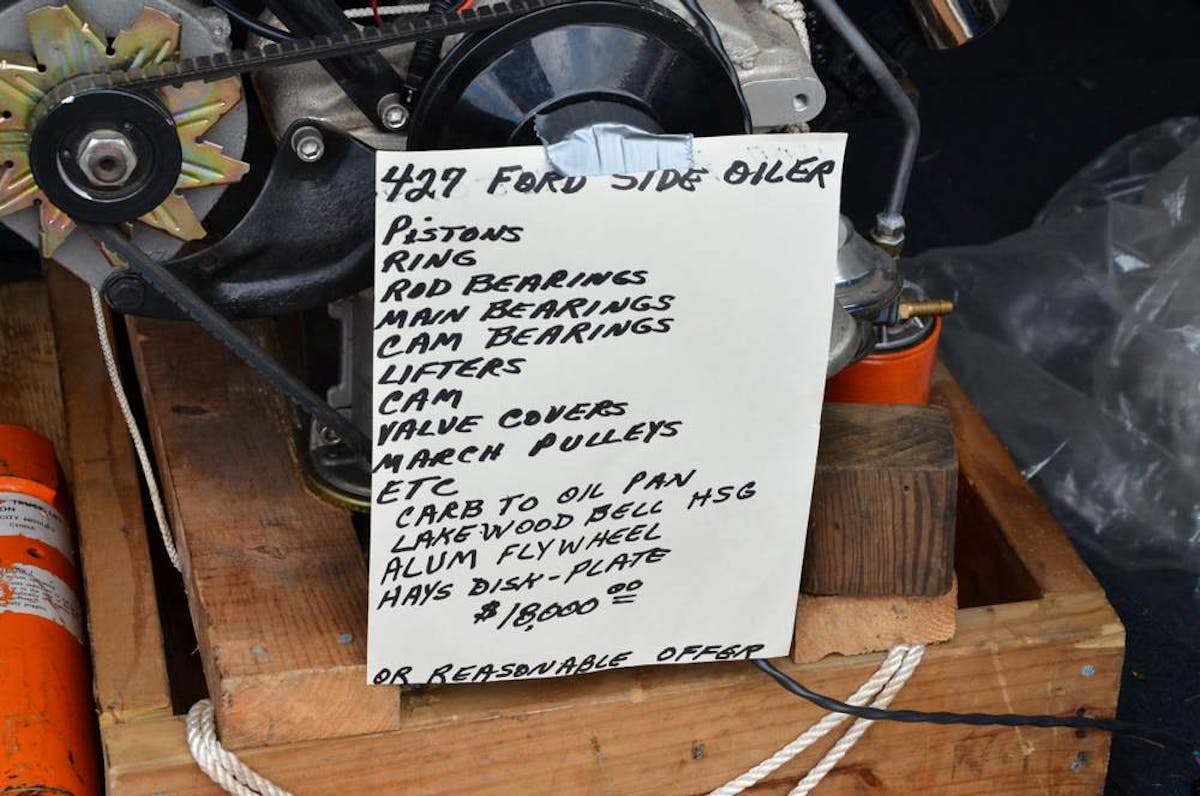 427 FORD SIDE OILER
PISTONS
RING
ROD BEARINGS
MAIN BEARINGS
CAM BEARINGS
LIFTERS
CAM
VALVE COVERS
MARCH PULLEYS
ETC
CARB TO OIL PAN
LAKEWOOD BELL HSG
ALUM FLYWHEEL
HAYS DISK-PLATE
$18,000 00
OR REASONABLE OFFER
CHINA